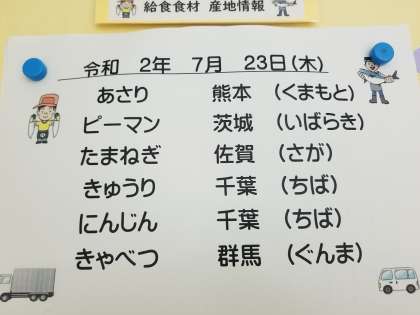 給食食材 産地情報
令和 2年 7月 23日(木)
あさり 熊本 (くまもと)
ピーマン 茨城 (いばらき)
たまねぎ 佐賀 (さが)
きゅうり 千葉 (ちば)
にんじん 千葉 (ちば)
きゃべつ 群馬 (ぐんま)